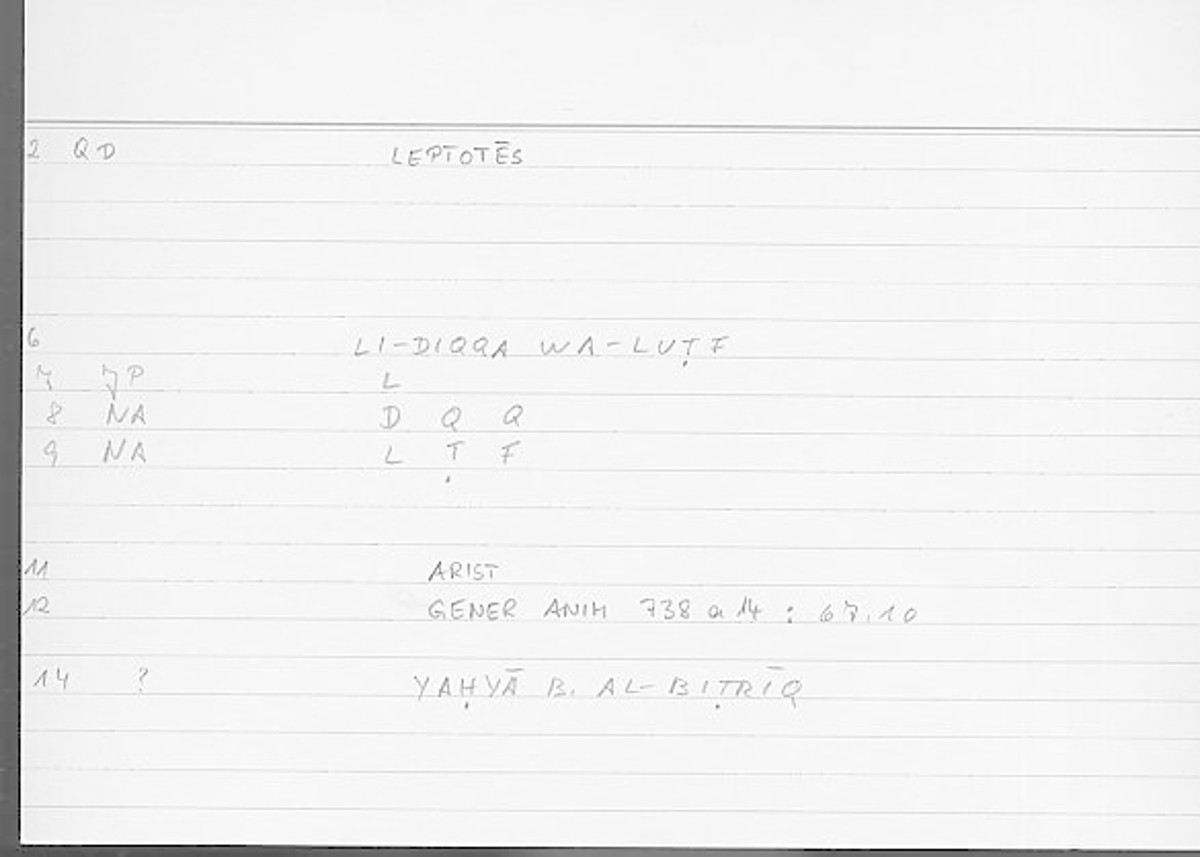 2 QD LEPTOTĒS
6 LI-DIQQA WA-LUṬF
7 JP L
8 NA D Q Q
9 NA L Ṭ F
11 ARIST
12 GENER ANIM 738 a 14 : 67.10
14 ? YAḤYĀ B. AL-BIṬRĪQ